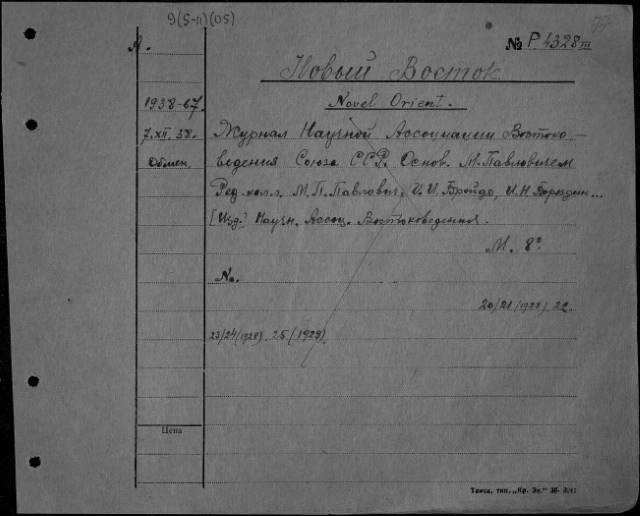 9(5-11)(05)
А.
№ Р. 4328 III
Новый Восток
1938-67.
Novel Orient.
7.XII.38. Журнал Научной Ассоциации Востоко-
Обмен. ведения Союза ССР. Основ. М. Павловичем
Ред. колл. М. П. Павлович, И. И. Бройдо, И. Н. Бороздин...
[Изд.] Научн. Ассоц. Востоковедения.
М. 8°.
№.
20/21 (1928), 22.
23/24 (1928), 25 (1929)
Цена
Томск, тип. „Кр. Зн."